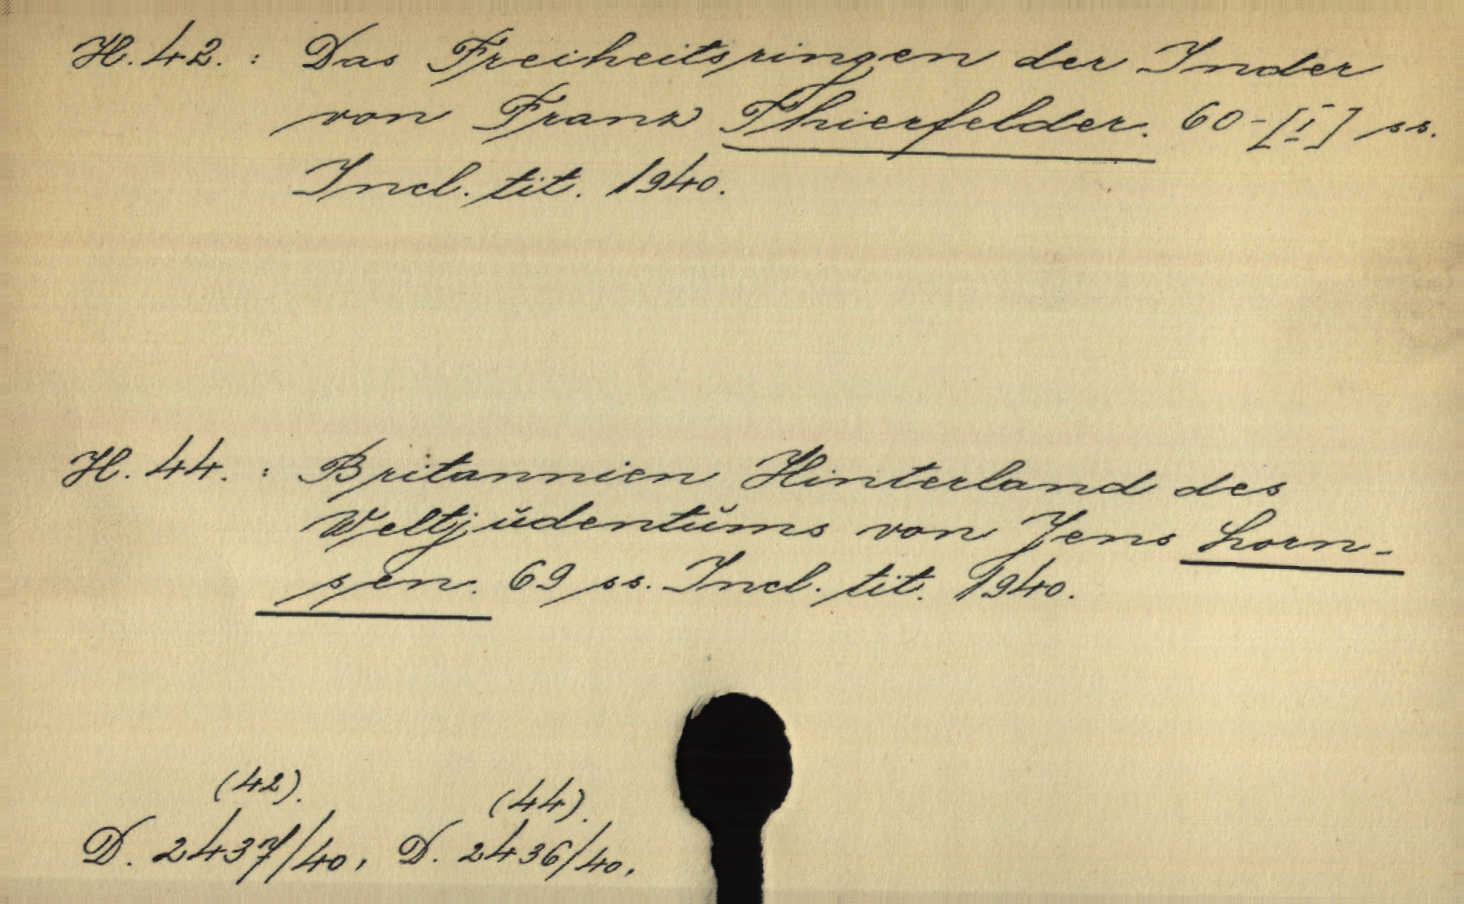 H. 42. : Das Freiheitsringen der Inder
von Franz Thierfelder. 60-[I] ss.
Incl. tit. 1940.
H. 44. : Britannien Hinterland des
Weltjŭdentŭms von Jens Lorn-
sen. 69 ss. Incl. tit. 1940.
(42). (44).
D. 2437/40, D. 2436/40.